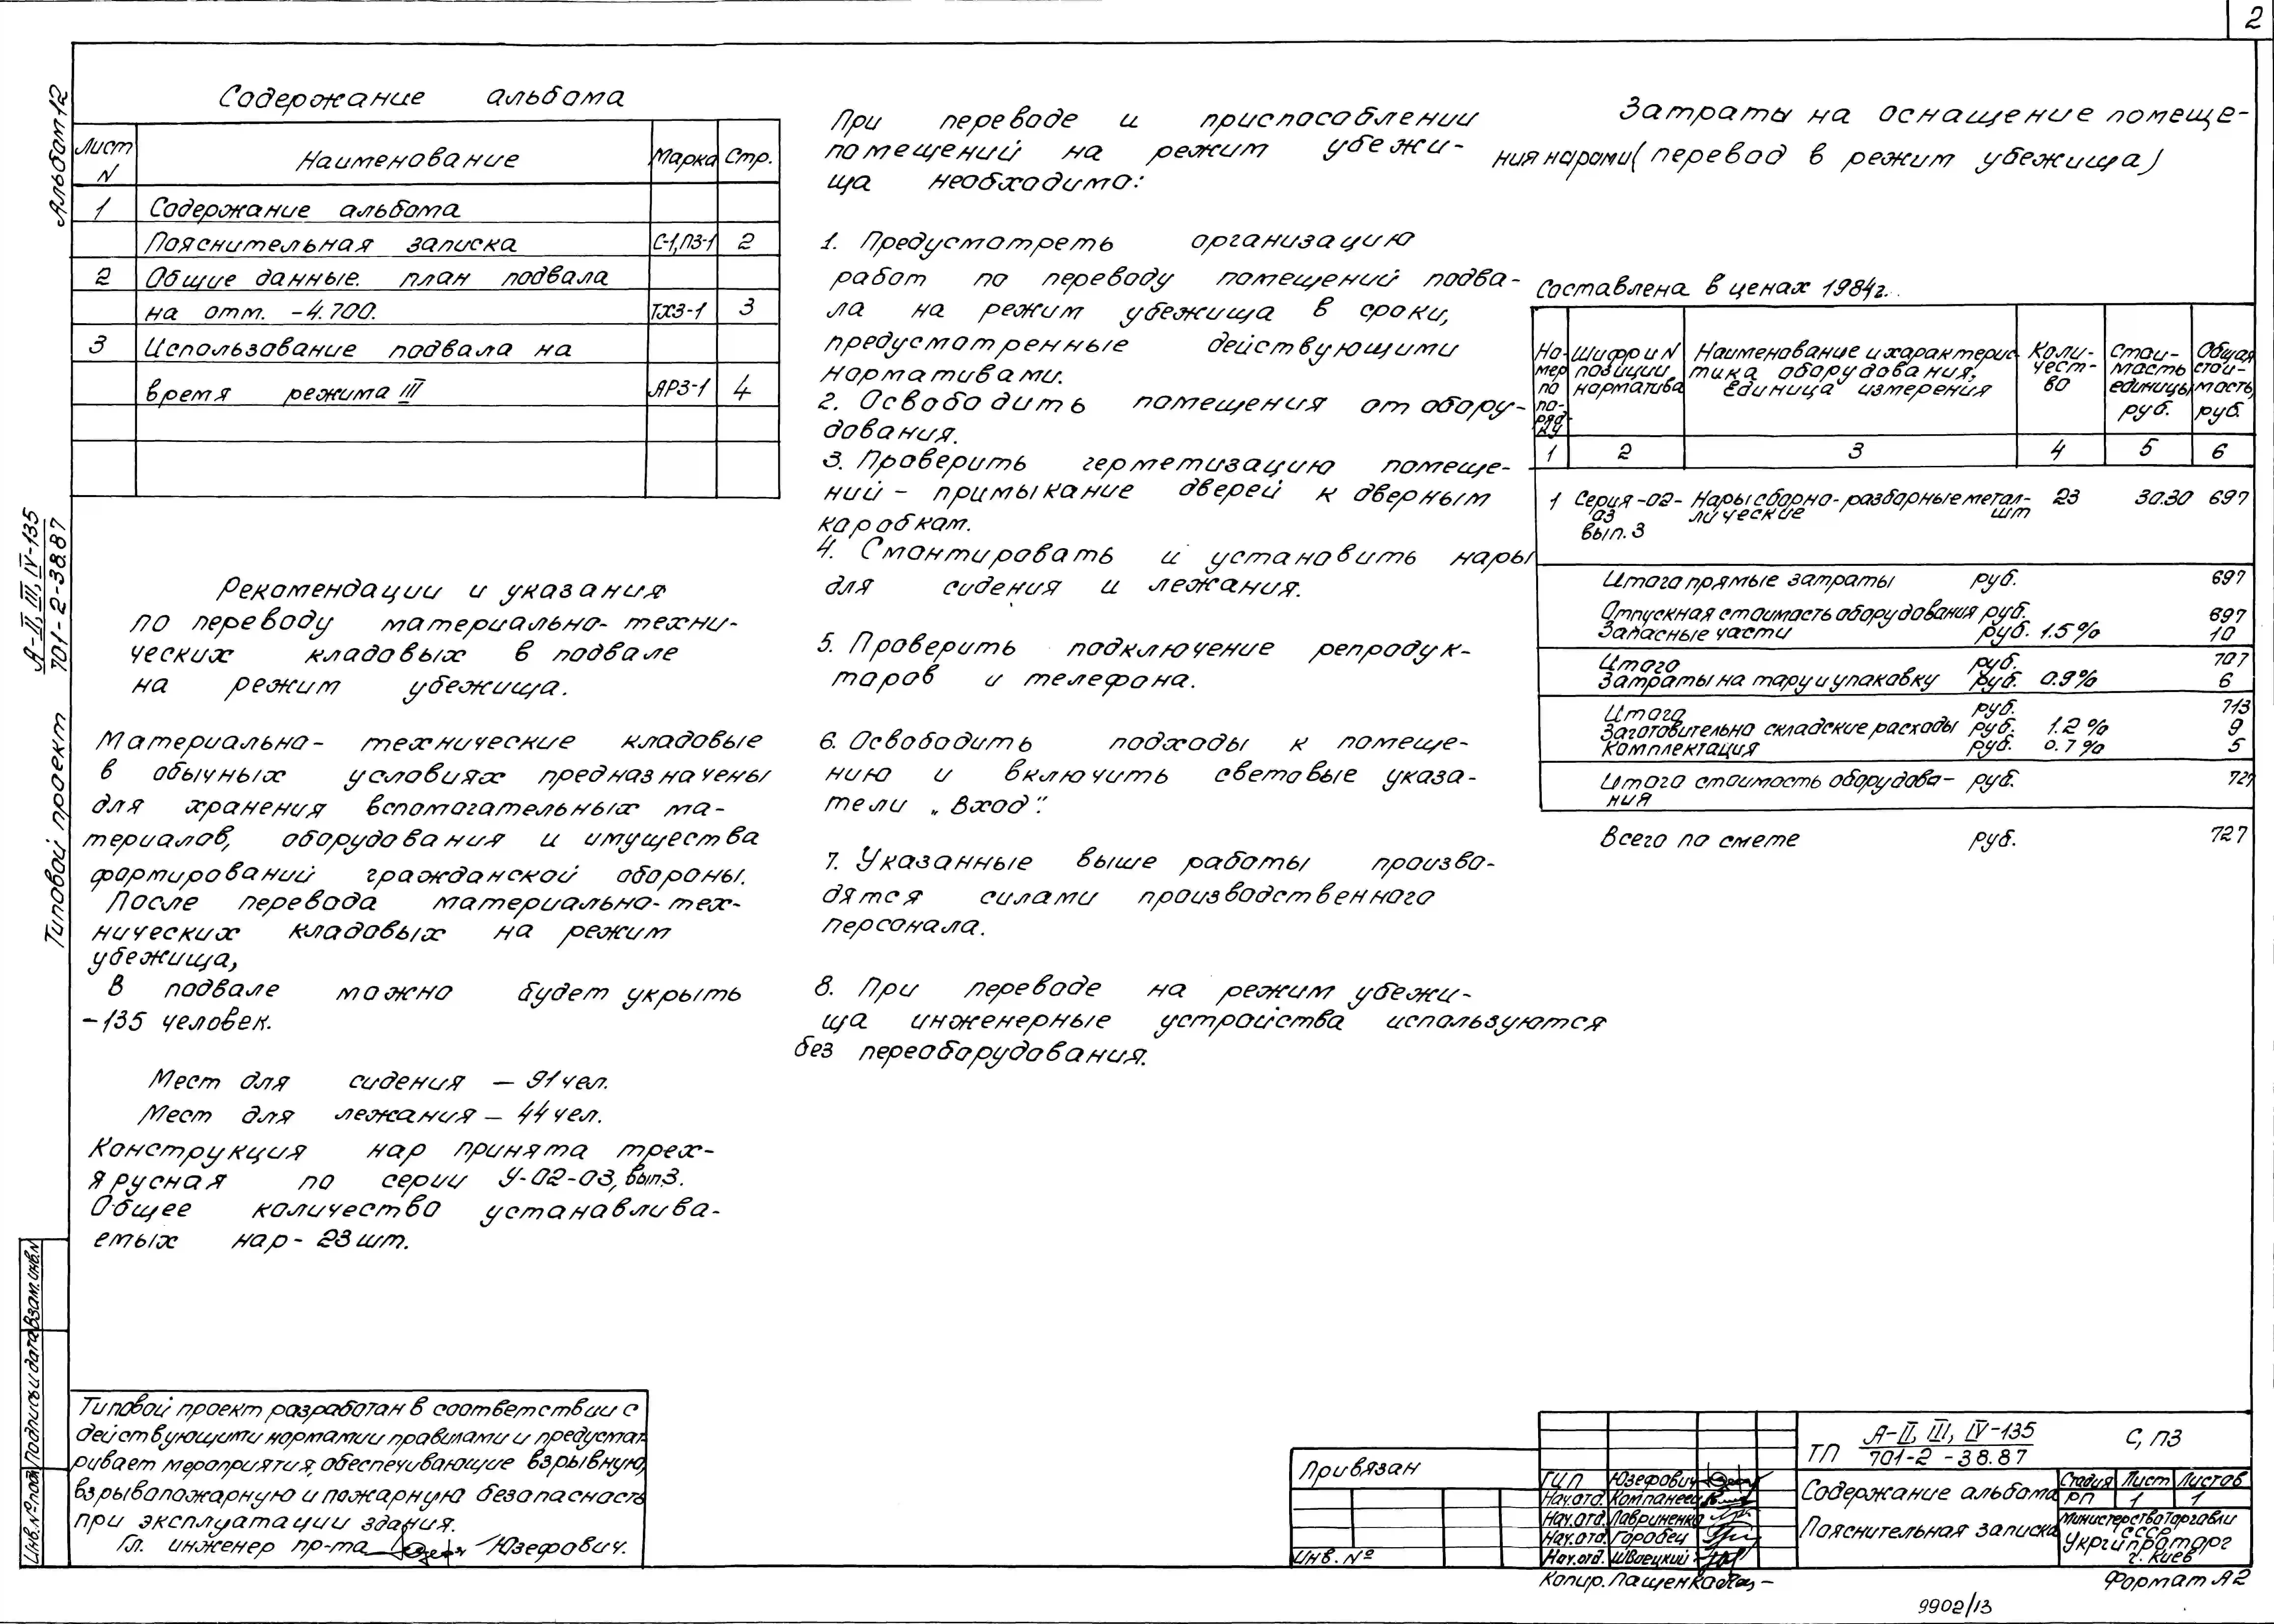 2
Альбом 12
А-II, III, IV-135
701-2-38.87
Типовой проект
Содержание альбома
Лист N | Наименование | Марка | Стр.
1 | Содержание альбома
Пояснительная записка | С-1, ПЗ-1 | 2
2 | Общие данные. план подвала
на отм. -4.700. | ТХЗ-1 | 3
3 | Использование подвала на
время режима III | АРЗ-1 | 4
Рекомендации и указания
по переводу материально-техни-
ческих кладовых в подвале
на режим убежища.
Материально- технические кладовые
в обычных условиях предназначены
для хранения вспомогательных ма-
териалов, оборудования и имущества
формирований гражданской обороны.
После перевода материально-тех-
нических кладовых на режим
убежища,
В подвале можно будет укрыть
-135 человек.
Мест для сидения — 91 чел.
Мест для лежания — 44 чел.
Конструкция нар принята трех-
ярусная по серии У-02-03, вып.3.
Общее количество устанавлива-
емых нар- 23 шт.
При переводе и приспособлении
помещений на режим убежи-
ща необходимо:
1. Предусмотреть организацию
работ по переводу помещений подва-
ла на режим убежища в сроки,
предусмотренные действующими
нормативами.
2. Освободить помещения от обору-
дования.
3. Проверить герметизацию помеще-
ний - примыкание дверей к дверным
коробкам.
4. Смонтировать и установить нары
для сидения и лежания.
5. Проверить подключение репродук-
торов и телефона.
6. Освободить подходы к помеще-
нию и включить световые указа-
тели „Вход".
7. Указанные выше работы произво-
дятся силами производственного
персонала.
8. При переводе на режим убежи-
ща инженерные устройства используются
без переоборудования.
Затраты на оснащение помеще-
ния нарами (перевод в режим убежища)
Составлена в ценах 1984г.
Но-мер по по-ряд-ку | Шифр и N позиции норматива | Наименование и характерис-тика оборудования. Единица измерения | Коли-чест-во | Стои-мость единицы руб. | Общая стои-мость, руб.
1 | 2 | 3 | 4 | 5 | 6
1 Серия -02- Нары сборно-разборные метал- 23 30.30 697
03 лические шт
вып. 3
Итого прямые затраты руб. 697
Отпускная стоимость оборудования руб. 697
Запасные части руб. 1.5% 10
Итого руб. 707
Затраты на тару и упаковку руб. 0.9% 6
Итого руб. 713
Заготовительно складские расходы руб. 1.2% 9
Комплектация руб. 0.7% 5
Итого стоимость оборудова- руб. 727
ния
Всего по смете руб. 727
Взам. инв. N
Подпись и дата
Инв. № подл.
Типовой проект разработан в соответствии с
действующими нормами и правилами и предусмат-
ривает мероприятия, обеспечивающие взрывную,
взрывопожарную и пожарную безопасность
при эксплуатации здания.
Гл. инженер пр-та Юзефович.
Привязан
Инв. №
ГИП Юзефович
Нач. отд. Компанеец
Нач. отд. Лавриненко
Нач. отд. Горобец
Нач. отд. Швецкий
ТП А-II, III, IV-135
701-2-38.87
С, ПЗ
Содержание альбома
Пояснительная записка
Стадия | Лист | Листов
РП | 1 | 1
Министерство Торговли
СССР
Укргипроторг
г. Киев
Копир. Пащенко
Формат А2
9902/13